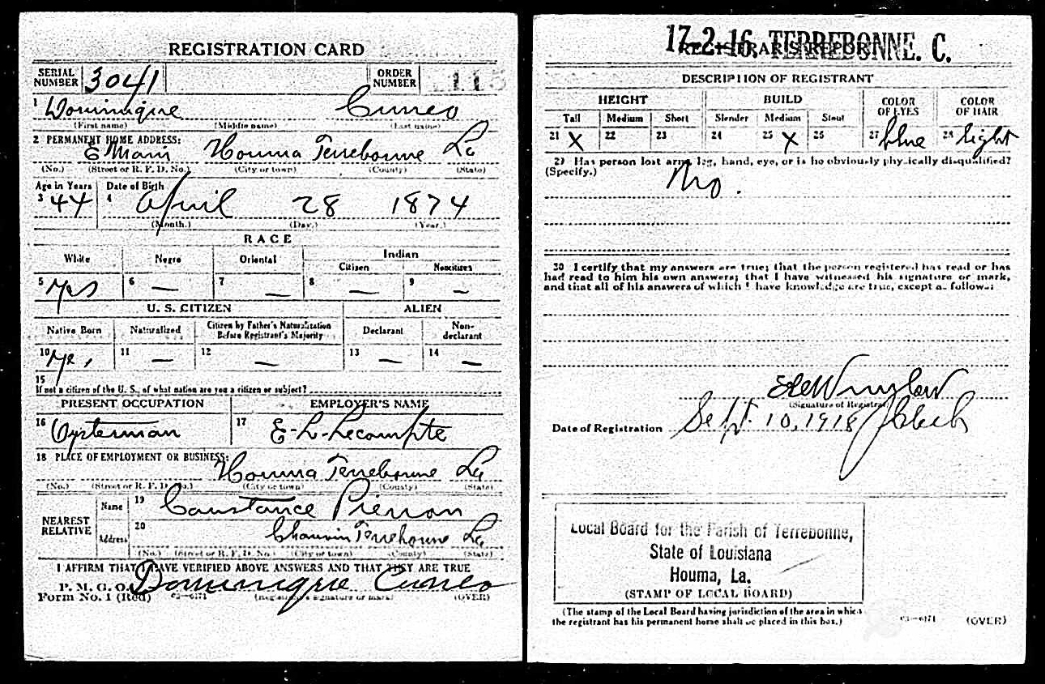 REGISTRATION CARD
SERIAL NUMBER 3041 ORDER NUMBER 115
1 Dominique Cuneo
(First name) (Middle name) (Last name)
2 PERMANENT HOME ADDRESS:
E Main Houma Terrebonne La
(No.) (Street or R. F. D. No.) (City or town) (County) (State)
Age in Years Date of Birth
3 44 4 April 28 1874
(Month.) (Day.) (Year.)
RACE
White Negro Oriental Indian
Citizen Noncitizen
5 Yes 6 — 7 — 8 — 9 —
U. S. CITIZEN ALIEN
Native Born Naturalized Citizen by Father's Naturalization Before Registrant's Majority Declarant Non-declarant
10 Yes, 11 — 12 — 13 — 14 —
15
If not a citizen of the U. S., of what nation are you a citizen or subject?
PRESENT OCCUPATION EMPLOYER'S NAME
16 Oysterman 17 E-L-Lecompte
18 PLACE OF EMPLOYMENT OR BUSINESS:
Houma Terrebonne La
(No.) (Street or R. F. D. No.) (City or town) (County) (State)
NEAREST RELATIVE
Name 19 Constance Pierron
Address 20 Chauvin Terrebonne La
(No.) (Street or R. F. D. No.) (City or town) (County) (State)
I AFFIRM THAT I HAVE VERIFIED ABOVE ANSWERS AND THAT THEY ARE TRUE
P. M. G. O. Dominique Cuneo
Form No. 1 (Red) (Registrant's signature or mark) (OVER)
17-2-16. TERREBONNE. C.
REGISTRAR'S REPORT
DESCRIPTION OF REGISTRANT
HEIGHT BUILD COLOR OF EYES COLOR OF HAIR
Tall Medium Short Slender Medium Stout
21 X 22 23 24 25 X 26 27 blue 28 light
29 Has person lost arm, leg, hand, eye, or is he obviously physically disqualified?
(Specify.) No.
30 I certify that my answers are true; that the person registered has read or has
had read to him his own answers; that I have witnessed his signature or mark,
and that all of his answers of which I have knowledge are true, except as follows:
(Signature of Registrar)
Date of Registration Sept. 10, 1918
Local Board for the Parish of Terrebonne,
State of Louisiana
Houma, La.
(STAMP OF LOCAL BOARD)
(The stamp of the Local Board having jurisdiction of the area in which
the registrant has his permanent home shall be placed in this box.)
(OVER)